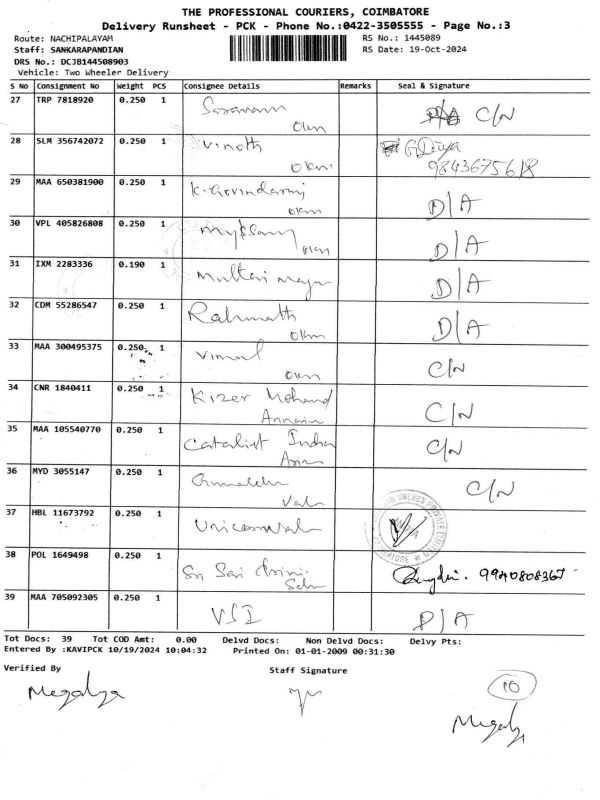 THE PROFESSIONAL COURIERS, COIMBATORE
Delivery Runsheet - PCK - Phone No.:0422-3505555 - Page No.:3
Route: NACHIPALAYAM RS No.: 1445089
Staff: SANKARAPANDIAN RS Date: 19-Oct-2024
DRS No.: DCJB144508903
Vehicle: Two Wheeler Delivery
S No Consignment No Weight PCS Consignee Details Remarks Seal & Signature
27 TRP 7818920 0.250 1 C/N
28 SLM 356742072 0.250 1 Vinoth G Divya
okm 9843675618
29 MAA 650381900 0.250 1 K. Govindasamy D/A
okm
30 VPL 405826808 0.250 1 D/A
okm
31 IXM 2283336 0.190 1 D/A
32 CDM 55286547 0.250 1 Rahmath D/A
okm
33 MAA 300495375 0.250 1 Vimal C/N
okm
34 CNR 1840411 0.250 1 Kizer Mohand C/N
35 MAA 105540770 0.250 1 Catalist India C/N
36 MYD 3055147 0.250 1 C/N
37 HBL 11673792 0.250 1
VALVES PRIVATE LIMITED
38 POL 1649498 0.250 1 Sri Sai 9940808367
39 MAA 705092305 0.250 1 VSI D/A
Tot Docs: 39 Tot COD Amt: 0.00 Delvd Docs: Non Delvd Docs: Delvy Pts:
Entered By :KAVIPCK 10/19/2024 10:04:32 Printed On: 01-01-2009 00:31:30
Verified By Staff Signature
10
Megalya
Megalya